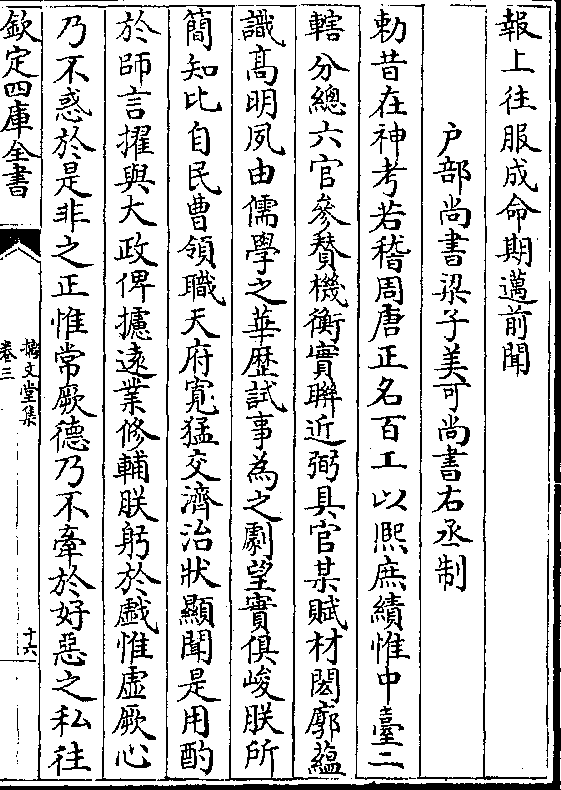 報上往服成命期邁前聞
户部尚書梁子美可尚書右丞制
勅昔在神考若稽周唐正名百工以熙庶績惟中臺二
轄分總六官參賛機衡實聨近弼具官某賦材閎廓藴
識髙明夙由儒學之華歴試事為之劇望實俱峻朕所
簡知比自民曹領職天府寛猛交濟治狀顯聞是用酌
於師言擢與大政俾攄逺業修輔朕躬於戯惟虚厥心
乃不惑於是非之正惟常厥德乃不牽於好惡之私往
欽定四庫全書
摛文堂集
卷三
十六